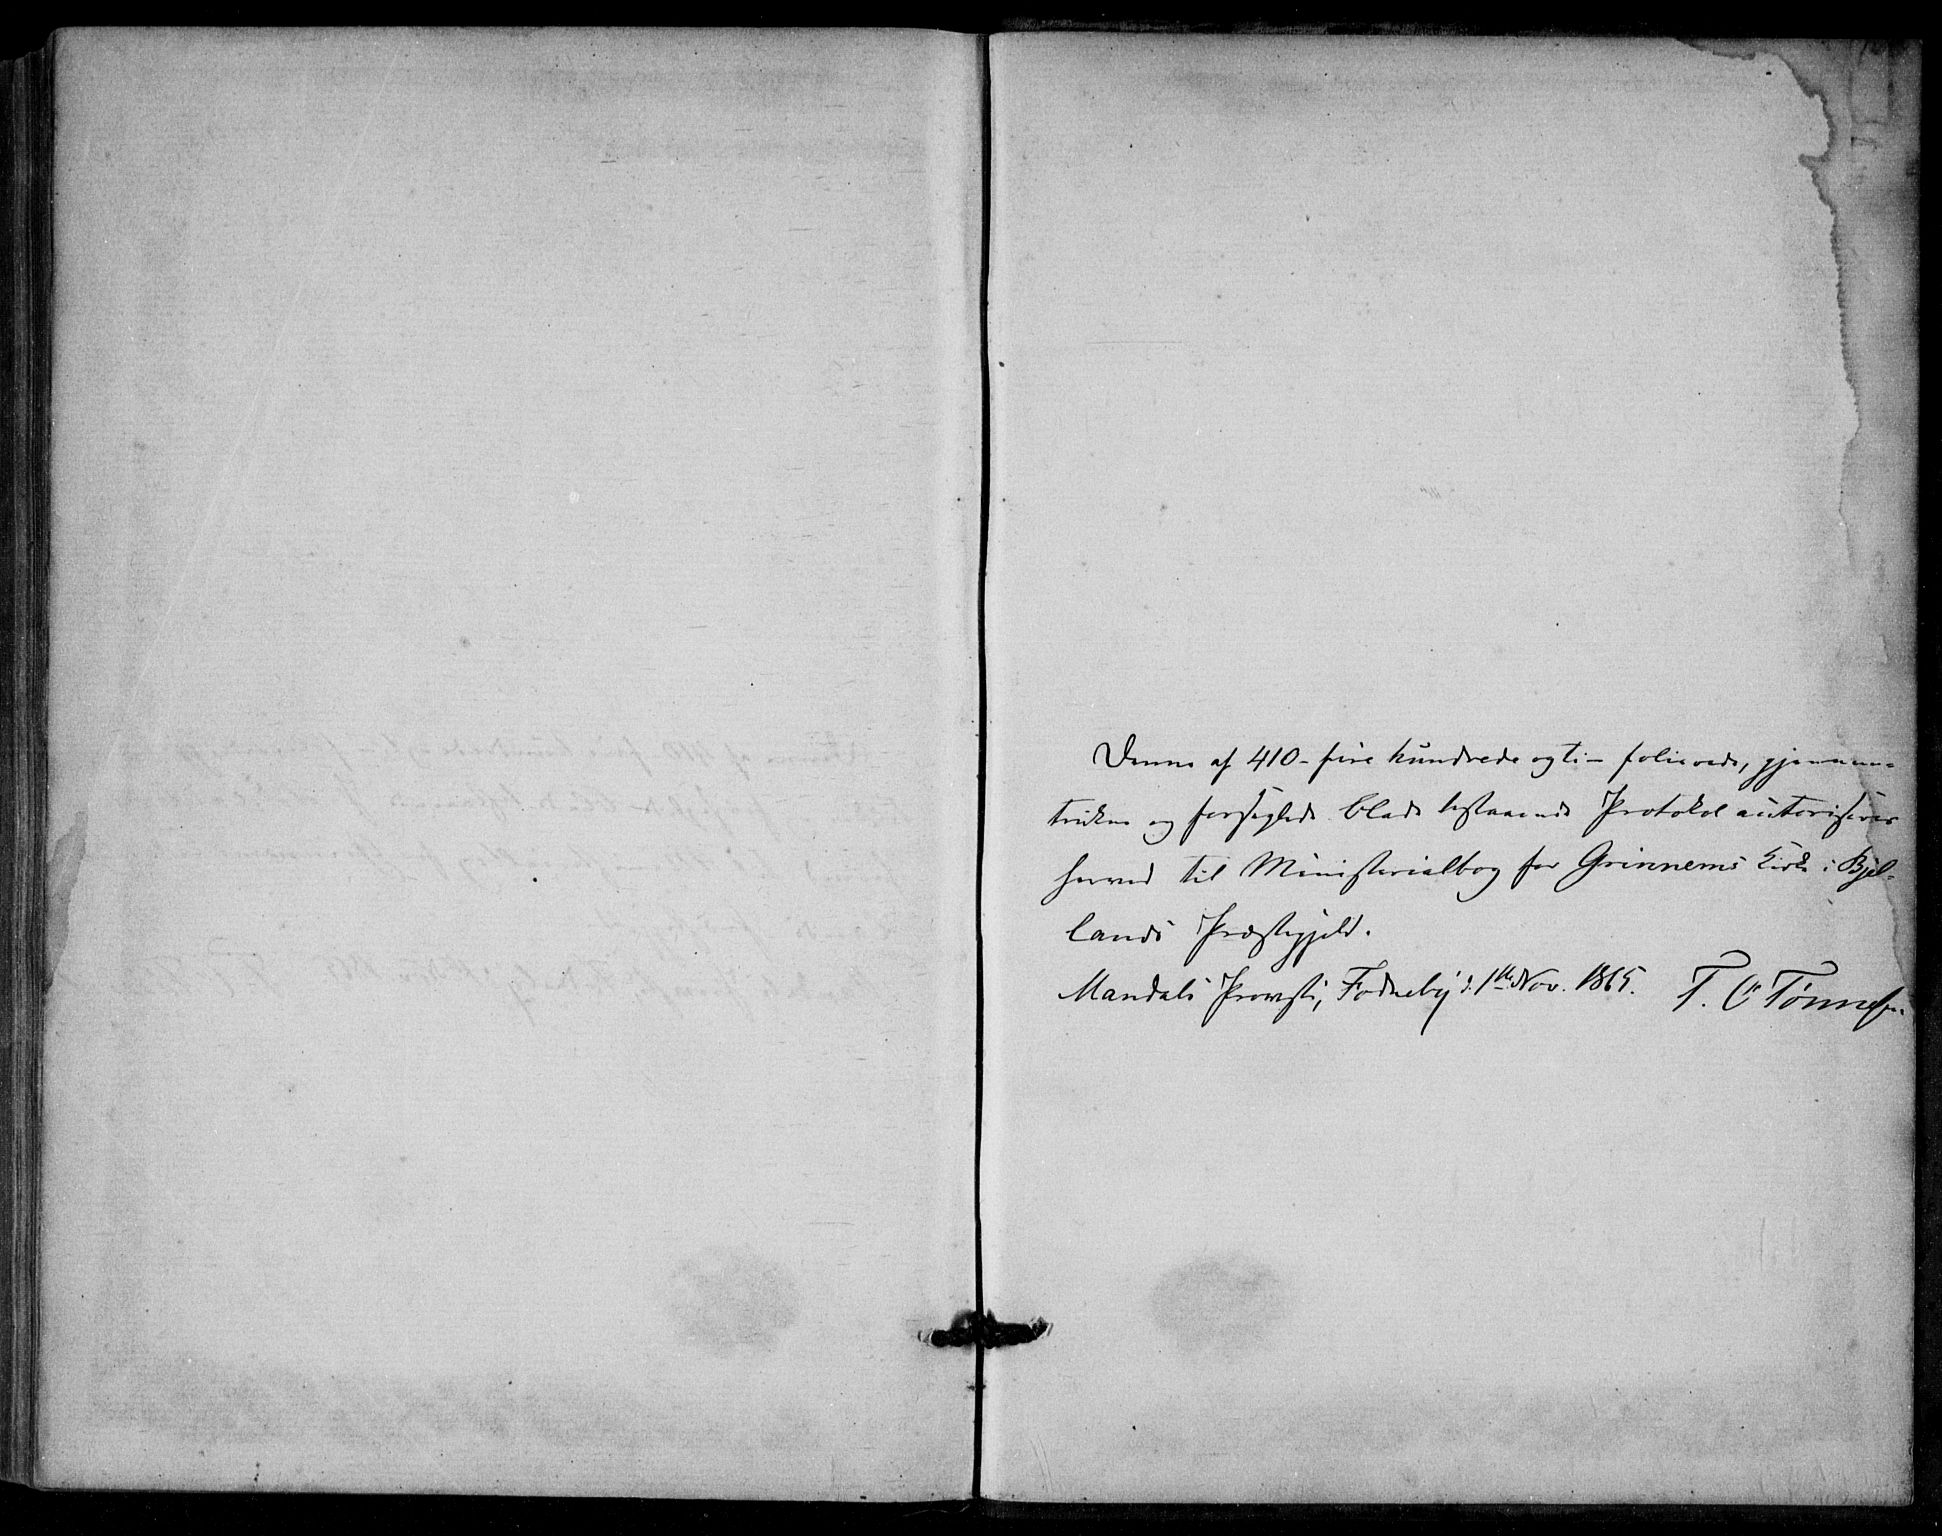 Denne af 410 - fire hundrede og ti - folierede, gjennem=
trukne og forseglede blade bestaaende Protokol autoriseres
herved til Ministerialbog for Grinnems Kirke i Bjel=
lands Præstegjeld.
Mandals Provsti, Fodneby d. 1ste Nov. 1865. T. C Tønnessen